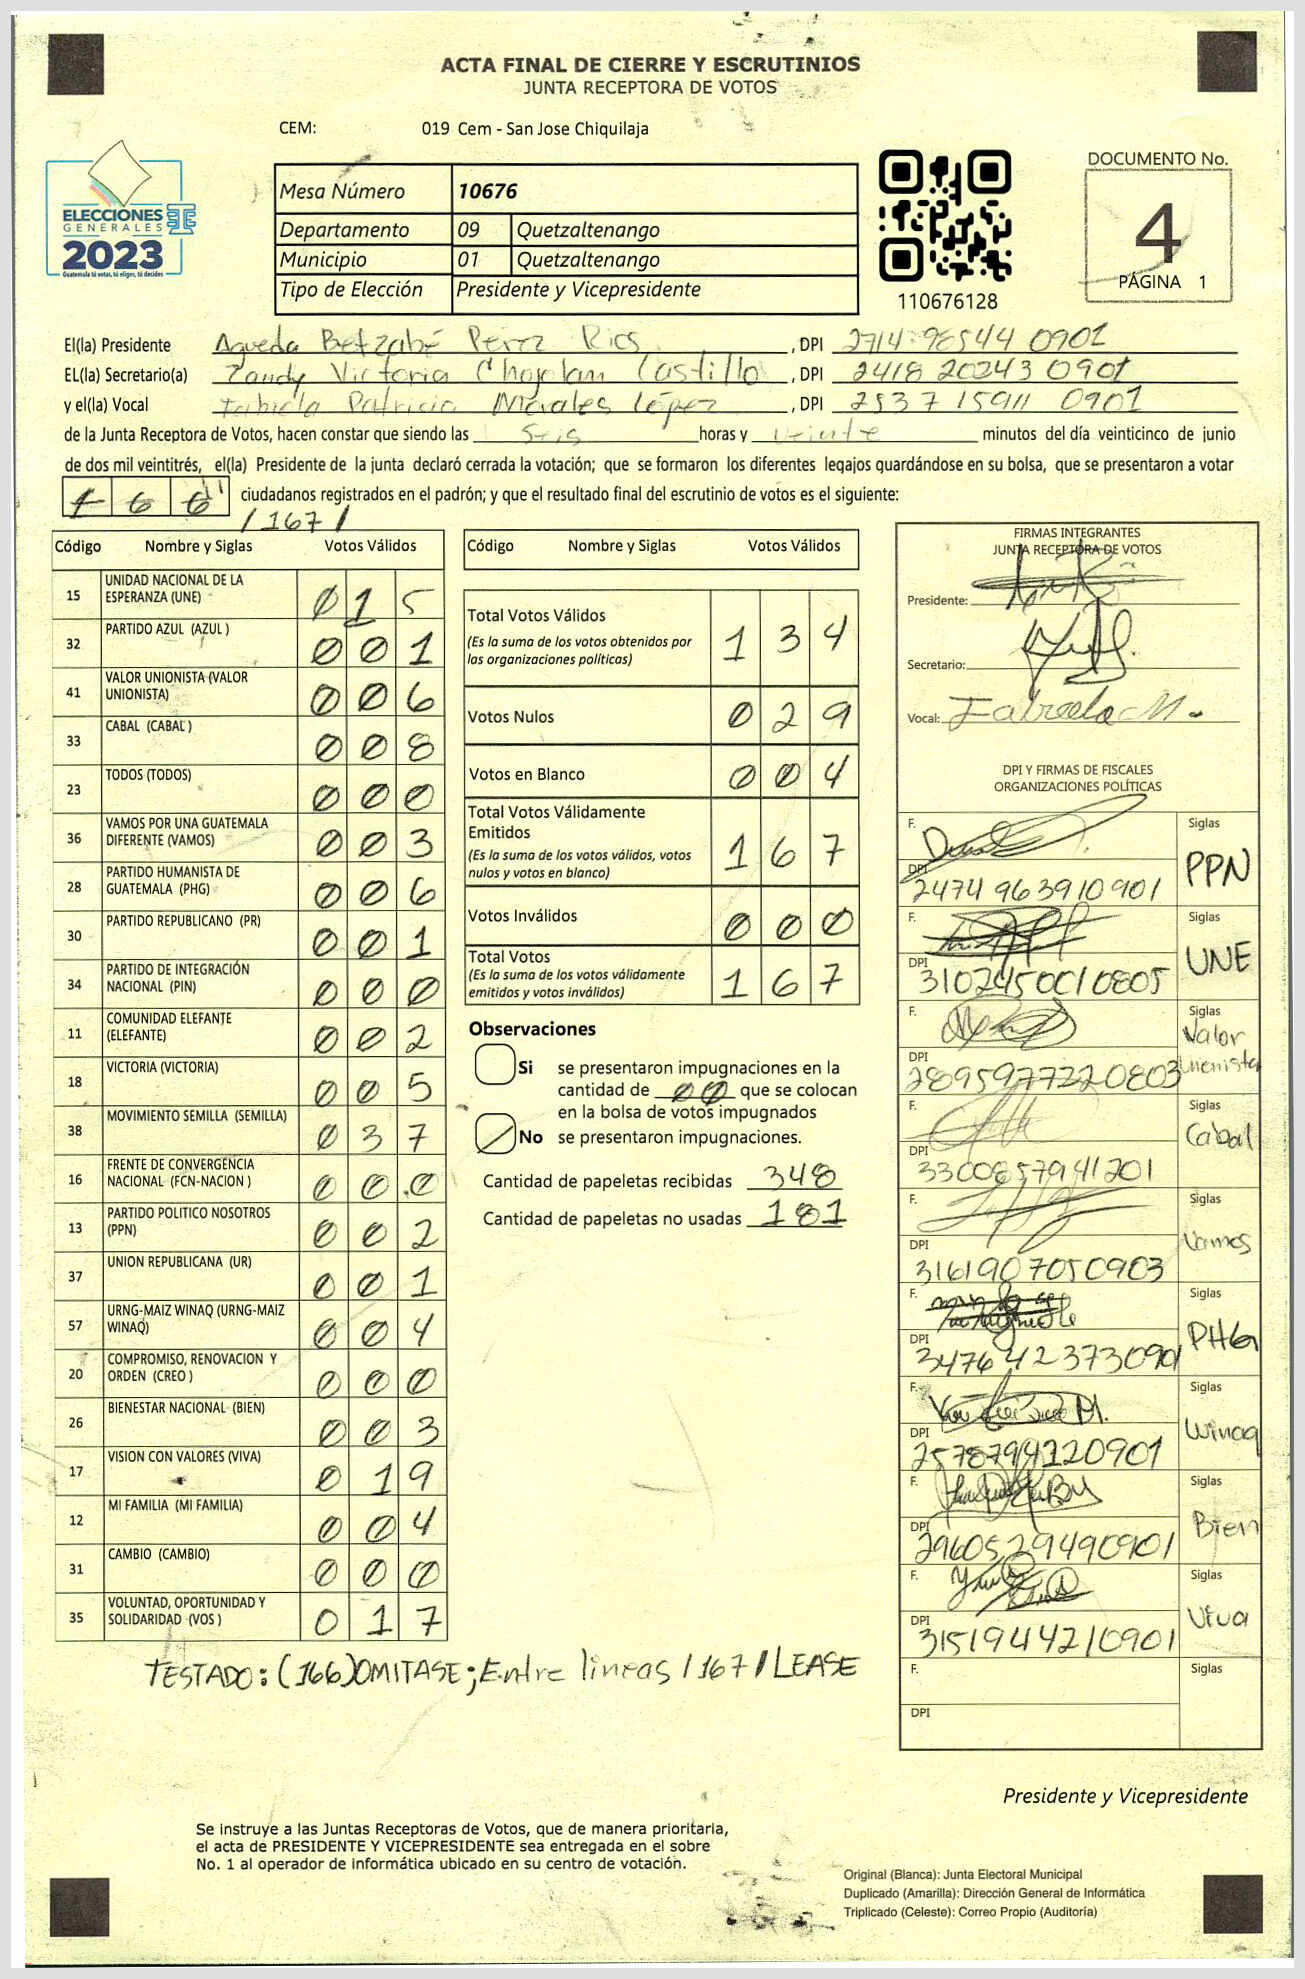 ACTA FINAL DE CIERRE Y ESCRUTINIOS
JUNTA RECEPTORA DE VOTOS
CEM: 019 Cem - San Jose Chiquilaja
ELECCIONES
GENERALES
2023
Guatemala tú votas, tú eliges, tú decides
Mesa Número 10676
Departamento 09 Quetzaltenango
Municipio 01 Quetzaltenango
Tipo de Elección Presidente y Vicepresidente
110676128
DOCUMENTO No.
4
PÁGINA 1
El(la) Presidente Agueda Betzabé Perez Rios, DPI 2714 98544 0901
EL(la) Secretario(a) Zandy Victoria Chojolan Castillo, DPI 2418 20243 0901
y el(la) Vocal Fabiola Patricia Morales López, DPI 2537 15911 0901
de la Junta Receptora de Votos, hacen constar que siendo las seis horas y veinte minutos del día veinticinco de junio
de dos mil veintitrés, el(la) Presidente de la junta declaró cerrada la votación; que se formaron los diferentes legajos guardándose en su bolsa, que se presentaron a votar
1 6 6 ciudadanos registrados en el padrón; y que el resultado final del escrutinio de votos es el siguiente:
/ 167 /
Código Nombre y Siglas Votos Válidos
15 UNIDAD NACIONAL DE LA ESPERANZA (UNE) 0 1 5
32 PARTIDO AZUL (AZUL ) 0 0 1
41 VALOR UNIONISTA (VALOR UNIONISTA) 0 0 6
33 CABAL (CABAL ) 0 0 8
23 TODOS (TODOS) 0 0 0
36 VAMOS POR UNA GUATEMALA DIFERENTE (VAMOS) 0 0 3
28 PARTIDO HUMANISTA DE GUATEMALA (PHG) 0 0 6
30 PARTIDO REPUBLICANO (PR) 0 0 1
34 PARTIDO DE INTEGRACIÓN NACIONAL (PIN) 0 0 0
11 COMUNIDAD ELEFANTE (ELEFANTE) 0 0 2
18 VICTORIA (VICTORIA) 0 0 5
38 MOVIMIENTO SEMILLA (SEMILLA) 0 3 7
16 FRENTE DE CONVERGENCIA NACIONAL (FCN-NACION ) 0 0 0
13 PARTIDO POLITICO NOSOTROS (PPN) 0 0 2
37 UNION REPUBLICANA (UR) 0 0 1
57 URNG-MAIZ WINAQ (URNG-MAIZ WINAQ) 0 0 4
20 COMPROMISO, RENOVACION Y ORDEN (CREO ) 0 0 0
26 BIENESTAR NACIONAL (BIEN) 0 0 3
17 VISION CON VALORES (VIVA) 0 1 9
12 MI FAMILIA (MI FAMILIA) 0 0 4
31 CAMBIO (CAMBIO) 0 0 0
35 VOLUNTAD, OPORTUNIDAD Y SOLIDARIDAD (VOS ) 0 1 7
Código Nombre y Siglas Votos Válidos
Total Votos Válidos 1 3 4
(Es la suma de los votos obtenidos por
las organizaciones políticas)
Votos Nulos 0 2 9
Votos en Blanco 0 0 4
Total Votos Válidamente
Emitidos 1 6 7
(Es la suma de los votos válidos, votos
nulos y votos en blanco)
Votos Inválidos 0 0 0
Total Votos 1 6 7
(Es la suma de los votos válidamente
emitidos y votos inválidos)
Observaciones
Si se presentaron impugnaciones en la
cantidad de 00 que se colocan
en la bolsa de votos impugnados
No se presentaron impugnaciones.
Cantidad de papeletas recibidas 348
Cantidad de papeletas no usadas 181
FIRMAS INTEGRANTES
JUNTA RECEPTORA DE VOTOS
Presidente:
Secretario:
Vocal: Fabiola M.
DPI Y FIRMAS DE FISCALES
ORGANIZACIONES POLÍTICAS
F. Siglas
DPI 2474 963910901 PPN
F. Siglas
DPI 3102450010805 UNE
F. Siglas
DPI 2895977220803 Valor Unionista
F. Siglas
DPI 3300857941201 Cabal
F. Siglas
DPI 3161907050903 Vamos
F. Siglas
DPI 3476423730901 PHG
F. Siglas
DPI 2578794220901 Winaq
F. Siglas
DPI 2960529490901 Bien
F. Siglas
DPI 3151944210901 Viva
F. Siglas
DPI
TESTADO: (166) OMITASE; Entre lineas /167/ LEASE
Presidente y Vicepresidente
Se instruye a las Juntas Receptoras de Votos, que de manera prioritaria,
el acta de PRESIDENTE Y VICEPRESIDENTE sea entregada en el sobre
No. 1 al operador de informática ubicado en su centro de votación.
Original (Blanca): Junta Electoral Municipal
Duplicado (Amarilla): Dirección General de Informática
Triplicado (Celeste): Correo Propio (Auditoría)